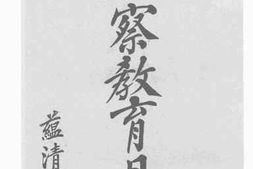 察教育
蘊清